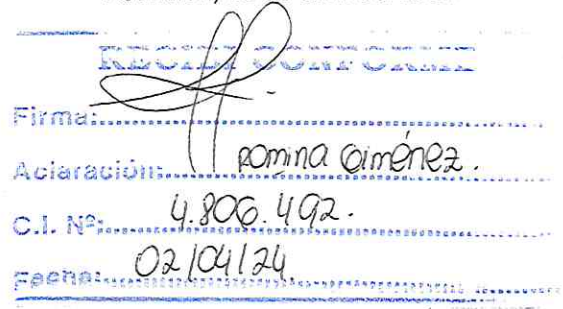 RECIBI CONFORME
Firma:
Aclaración: Romina Giménez.
C.I. Nº: 4.806.492.
Fecha: 02/04/24.